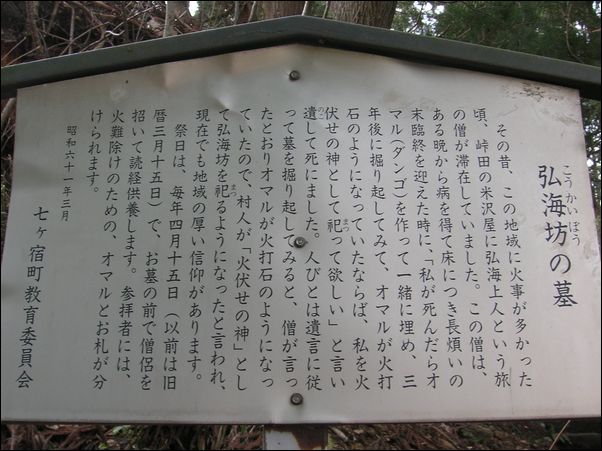 弘海坊の墓
こうかいぼう
その昔、この地域に火事が多かった
頃、峠田の米沢屋に弘海上人という旅
の僧が滞在していました。この僧は、
ある晩から病を得て床につき長煩いの
末臨終を迎えた時に、「私が死んだらオ
マル(ダンゴ)を作って一緒に埋め、三
年後に掘り起してみて、オマルが火打
石のようになっていたならば、私を火
伏せの神として祀って欲しい」と言い
まつ
遺して死にました。人びとは遺言に従
のこ
って墓を掘り起してみると、僧が言っ
たとおりオマルが火打石のようになっ
ていたので、村人が「火伏せの神」とし
て弘海坊を祀るようになったと言われ、
まつ
現在でも地域の厚い信仰があります。
祭日は、毎年四月十五日(以前は旧
暦三月十五日)で、お墓の前で僧侶を
招いて読経供養します。参拝者には、
火難除けのための、オマルとお札が分
けられます。
昭和六十一年三月
七ヶ宿町教育委員会